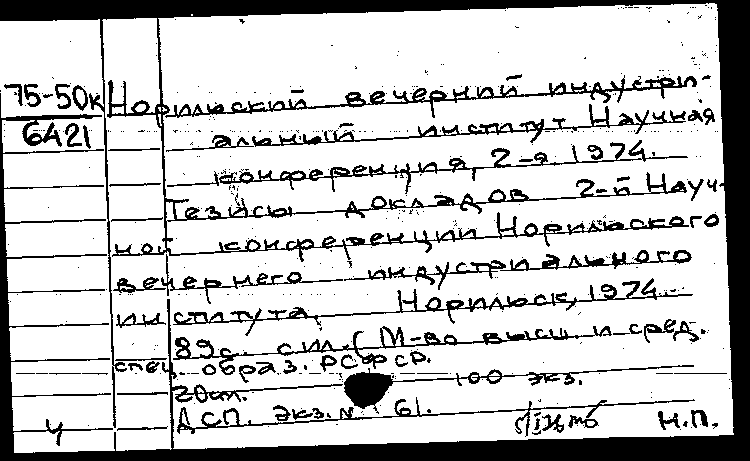 75-50к Норильский вечерний индустри-
6421 альный институт. Научная
конференция, 2-я. 1974.
Тезисы докладов 2-й Науч-
ной конференции Норильского
вечернего индустриального
института. Норильск, 1974.
89с. с ил. (М-во высш. и сред.
спец. образ. РСФСР.
20см. 100 экз.
ДСП. Экз. № 61.
ч Н.П.